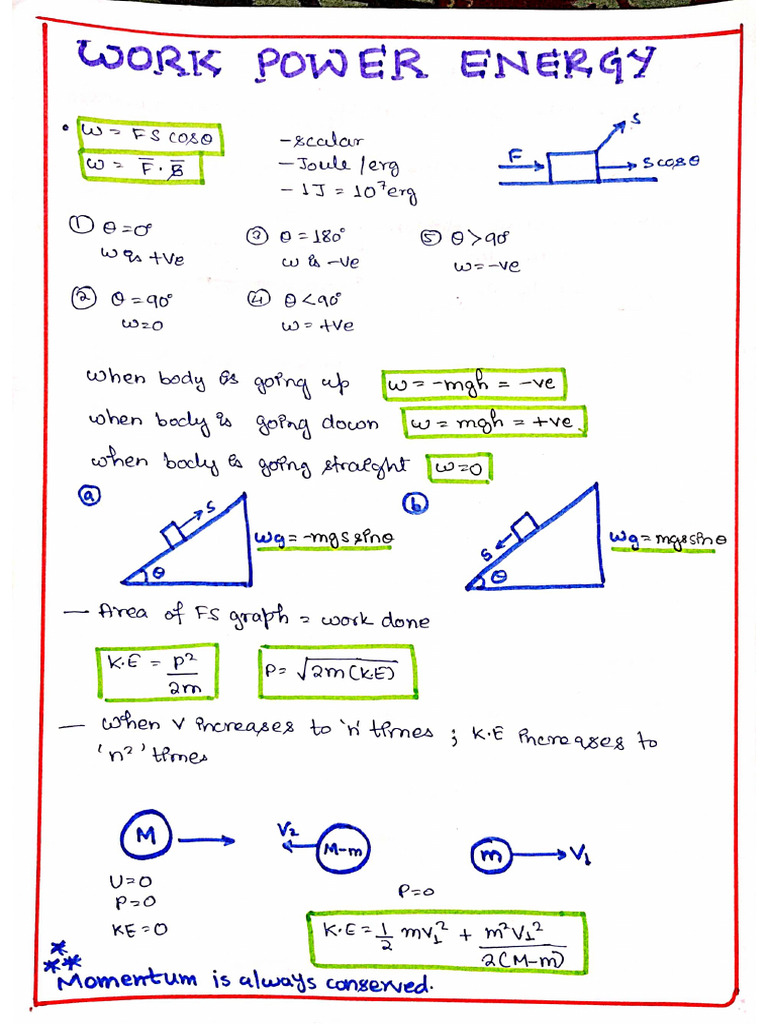 WORK POWER ENERGY
• W = FS cosθ
W = F̅ · S̅
- scalar
- Joule / erg
- 1J = 10⁷ erg
F
S
S cosθ
① θ = 0°
W is +ve
③ θ = 180°
W is -ve
⑤ θ > 90°
W = -ve
② θ = 90°
W = 0
④ θ < 90°
W = +ve
when body is going up W = -mgh = -ve
when body is going down W = mgh = +ve
when body is going straight W = 0
ⓐ
S
θ
Wg = -mgs sinθ
ⓑ
S
θ
Wg = mgs sinθ
— Area of FS graph = work done
K.E = p²/2m
P = √2m(K.E)
— When V increases to 'n' times ; K.E increases to
'n²' times
M
V₂
M-m
m
V₁
U = 0
P = 0
KE = 0
P = 0
K.E = 1/2 mV₁² + m²V₁²/2(M-m)
***
Momentum is always conserved.